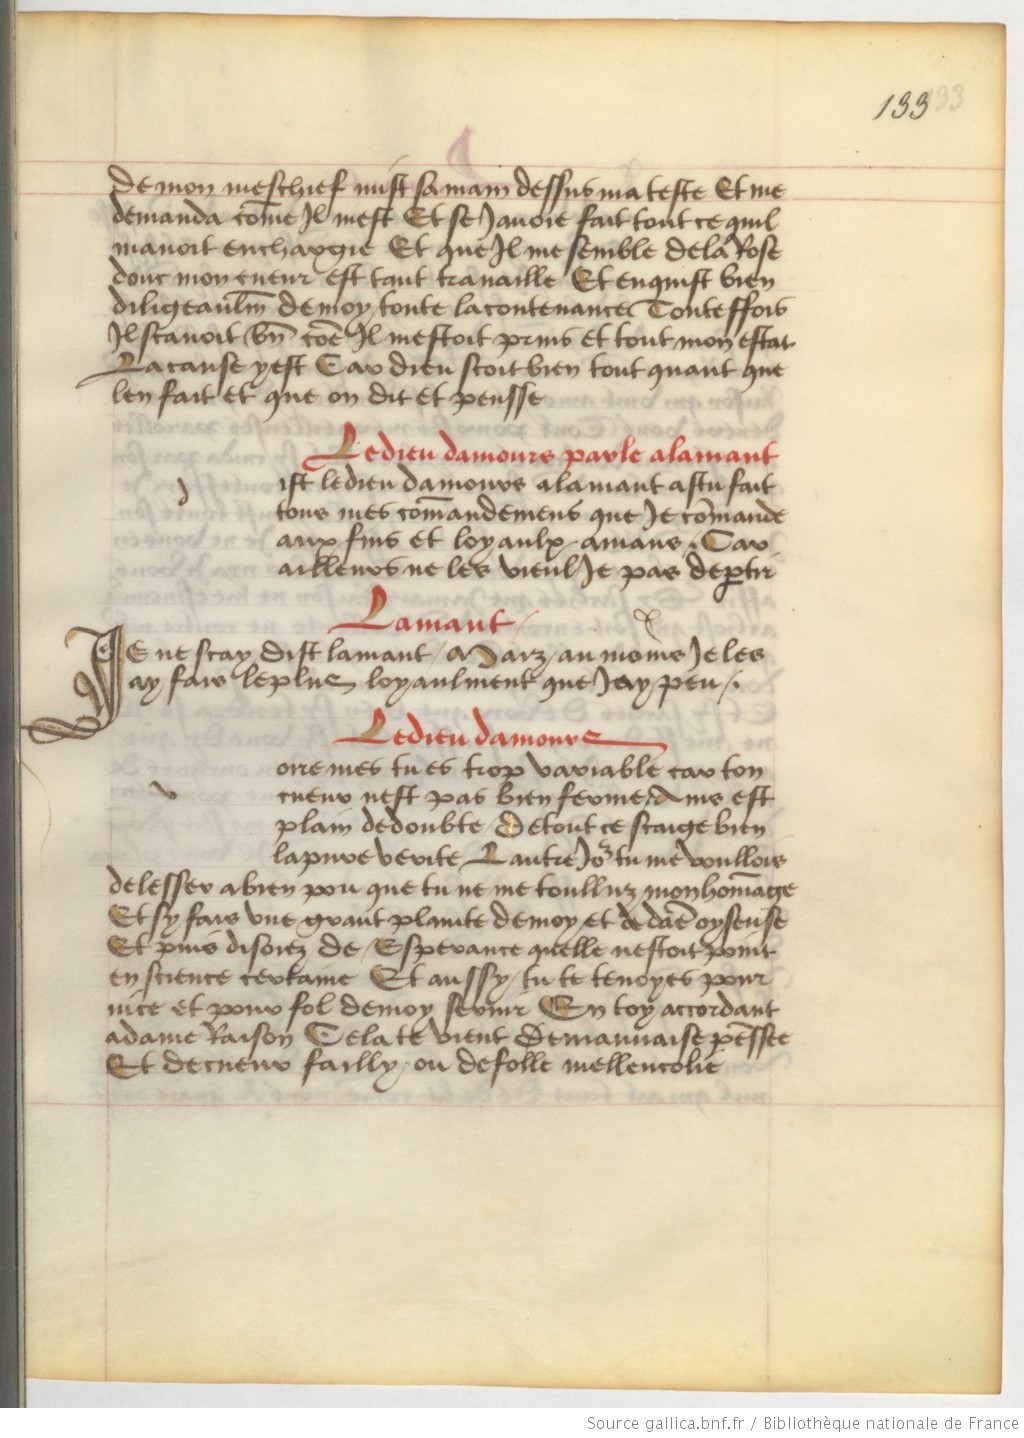 133
de mon meschief mist sa main dessus ma teste Et me
demanda cōme Il mest Et se Javoie fait tout ce quil
mavoit enchargie Et que Il me semble de la Rose
donc mon cueur est tant travaille Et enquist bien
diligeaulm̄ de moy toute la contenance Touteffois
Il scavoit bn̄ cōe Il mestoit prins et tout mon estat
La cause y est Car dieu scoit bien tout quant que
len fait et que on dit et pensse
Le dieu damours parle a lamant
d
ist le dieu damours a lamant as tu fait
tous mes cōmandemens que Je cōmande
aux fins et loyaulx amans. Car
ailleurs ne les vieul Je pas deptir
Lamant
JE ne scay dist lamant / Maiz / au moins Je les
ay fais le plus loyaulment que Jay peu /.
Le dieu damours
v
oire mes tu es trop variable car ton
cueur nest pas bien ferme / Ains est
plain de doubte / De tout ce scaige bien
la pure verite Lautre Jo᷑ tu me voullois
delesser a bien pou que tu ne me toulluz mon hōmage
Et sy fais une grant plainte de moy et de dāe oyseuse
Et puis disoiez de Esperance quelle nestoit point
en science certaine Et aussy / tu te tenoyes pour
nice et pour fol de moy servir En toy accordant
a dame Raison Cela te vient de mauvaise pēssee
Et de cueur failly / ou de folle mellencolie
Source gallica.bnf.fr / Bibliothèque nationale de France